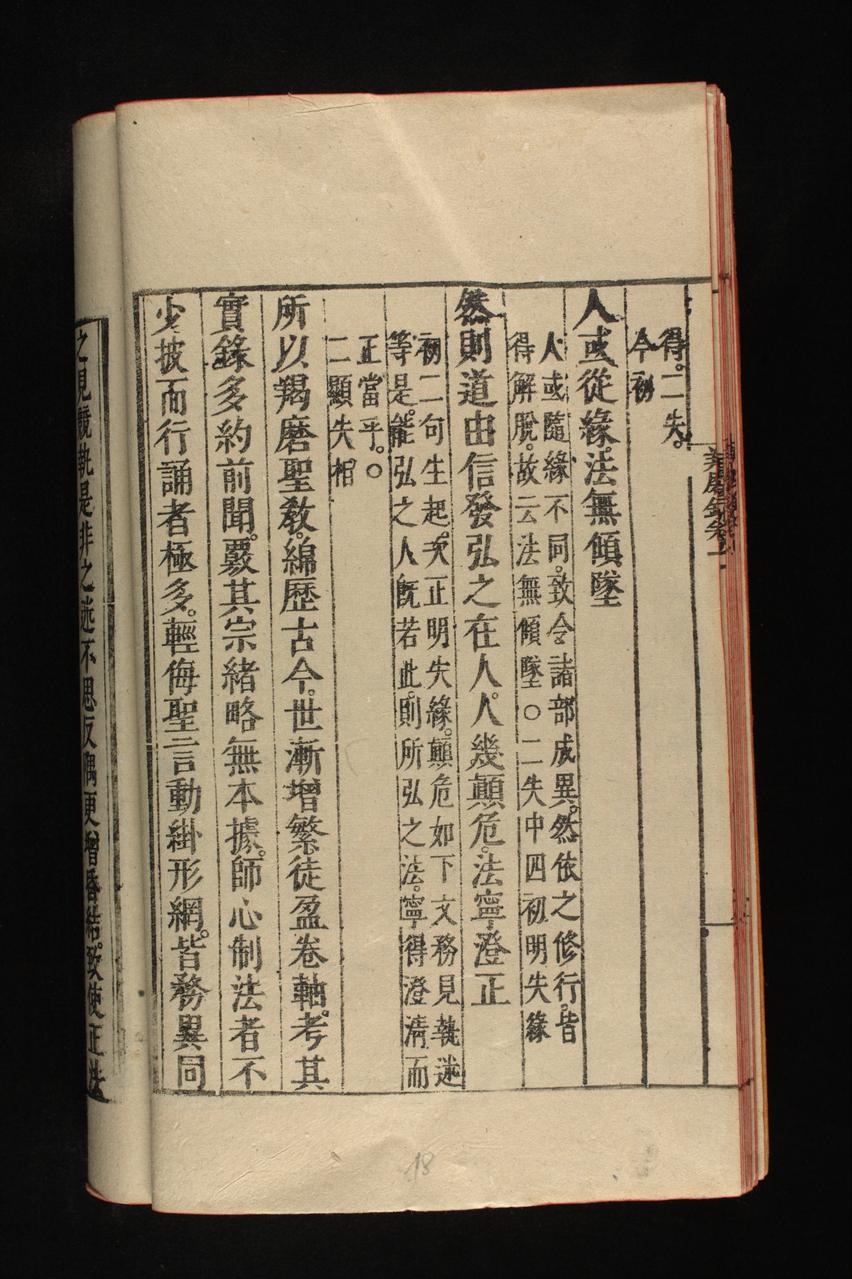 得。二失。
今初
人或從緣。法無傾墜
人或隨緣不同。致令諸部成異。然依之修行。皆
得解脫。故云法無傾墜〇二失中四初明失緣
然則道由信發弘之在人。人幾顛危。法寧澄正
初二句生起。次正明失緣。顛危如下文務見執迷
等是。能弘之人旣若此。則所弘之法。寧得澄清而
正當乎。〇
二顯失相
所以羯磨聖教。綿歷古今。世漸增繁。徒盈卷軸。考其
實錄多約前聞。覈其宗緒略無本據。師心制法者不
少。披而行誦者極多。輕侮聖言動掛形網。皆務異同
之見競執是非之迷不思反隅更增昏結。致使正法